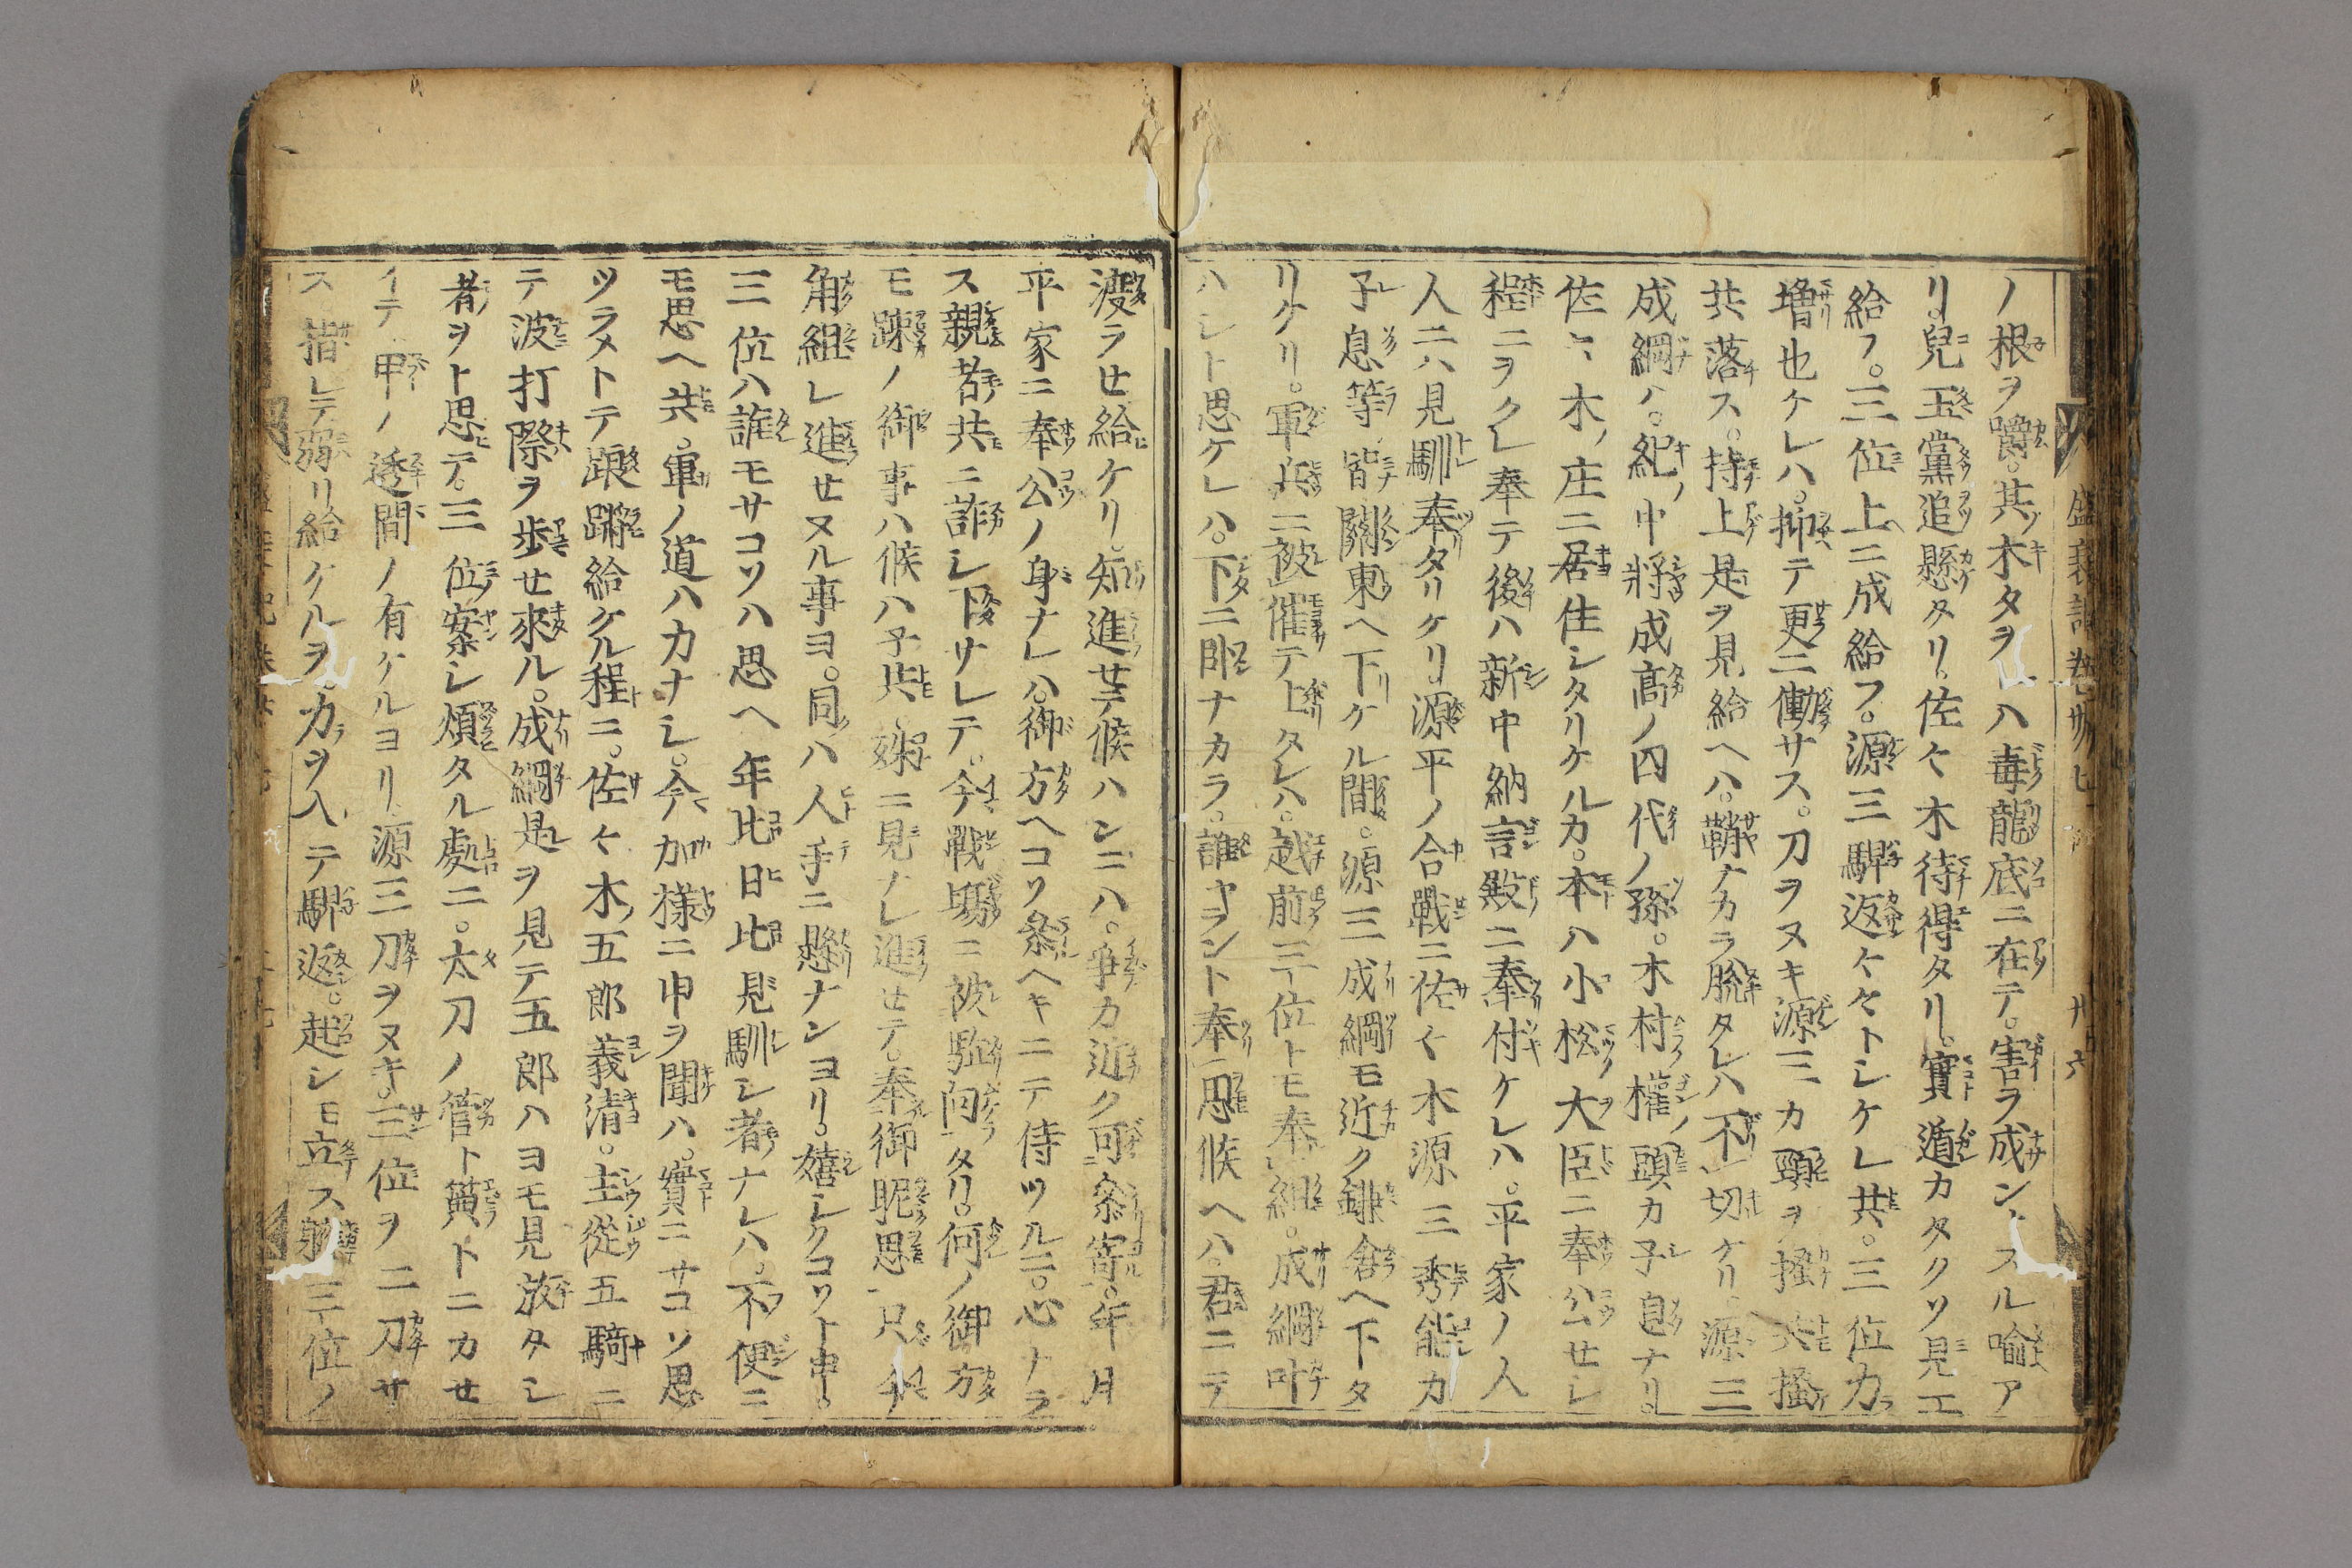 ノ根ヲ嚼。其木タヲハ毒龍底ニ在テ。害ヲ成ン、スル喩ア
リ。兒玉黨追懸タリ。佐々木待得タリ。實遁カタクソ見エ
給フ。三位上ニ成給フ。源三騨返々々トシケレ共。三位力
増也ケレハ。抑テ更ニ働サス。刀ヲヌキ源三カ頸ヲ搔共搔
共落ス。持上是ヲ見給ヘハ。鞘ナカラ脱タレハ不切ケリ。源三
成綱ハ。紀中將成高ノ四代ノ孫。木村權ノ頭カ子息ナリ。
佐々木ノ庄ニ居住シタリケルカ。本ハ小松ノ大臣ニ奉公セシ
程ニヲクレ奉テ後ハ新中納言殿ニ奉付ケレハ。平家ノ人
人ニハ見馴奉タリケリ。源平ノ合戰ニ佐々木源三秀能カ
子息等皆關東ヘ下ケル間。源三成綱モ近ク鎌倉ヘ下タ
リケリ。軍兵ニ被催テ上タレハ。越前三位トモ奉組。成綱叶
ハシト思ケレハ。下ニ臥ナカラ。誰ヤラント奉思候ヘハ。君ニテ
渡ラセ給ケリ。知進セテ候ハンニハ。爭カ近ク可參寄。年月
平家ニ奉公ノ身ナレハ。御方ヘコソ參ヘキニテ侍ツルニ。心ナラ
ス親者共ニ誘レ下サレテ。今戰場ニ被駈向タリ。何ノ御方
モ疎ノ御事ハ候ハ子共、殊ニ見ナレ進セテ。奉御昵思。只今
角組レ進セヌル事ヨ。同ハ人手ニ懸ナンヨリ。嬉シクコソト申。
三位ハ誰モサコソハ思ヘ年比日比見馴シ者ナレハ。不便ニ
モ思ヘ共、軍ノ道ハカナシ。今加樣ニ申ヲ聞ハ。實ニサコソ思
ツラメトテ踉蹡給ケル程ニ。佐々木ノ五郎義清。主從五騎ニ
テ波打際ヲ歩セ來ル。成綱是ヲ見テ五郎ハヨモ見放タシ
者ヲト思テ。三位案シ煩タル處ニ。太刀ノ管ト簧トニカセ
イテ甲ノ透間ノ有ケルヨリ源三刀ヲヌキ。三位ヲ二刀サ
ス。指レテ弱リ給ケルヲ。力ヲ入テ騨返。起シモ立ス軈テ三位ノ